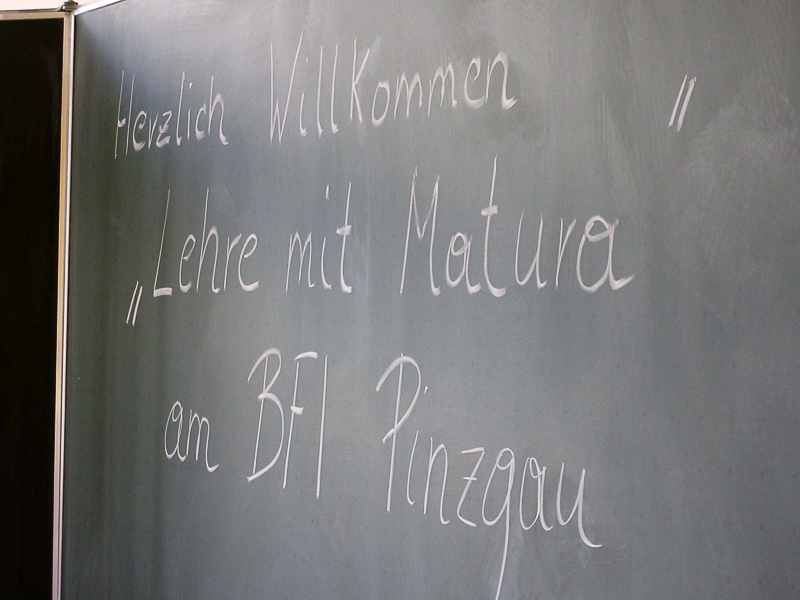 Herzlich Willkommen
„Lehre mit Matura"
am BFI Pinzgau